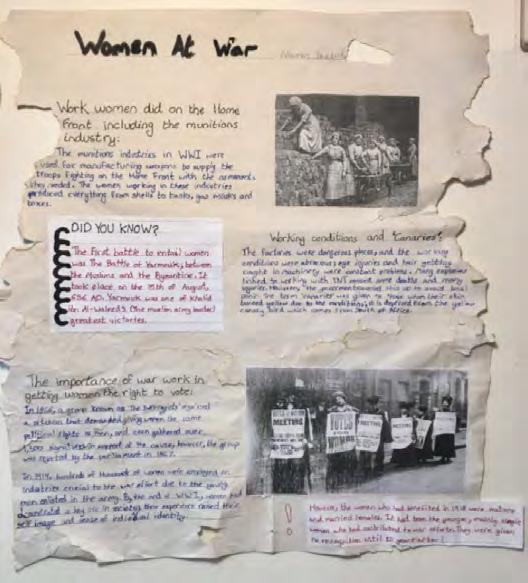 Women At War
Work women did on the Home
Front including the munitions
industry:
The munitions industries in WWI were
used for manufacturing weapons to supply the
troops fighting on the Home Front with the
they needed. The women working in these industries
produced everything from shells to tanks, gas masks and
boxes.
DID YOU KNOW?
The first battle to entail women
was The Battle of Yarmouk, between
the Muslims and the Byzantine. It
took place on the 15th of August,
636 AD. Yarmouk was one of Khalid
ibn Al-Waleed's (the muslim army leader)
greatest victories.
Working conditions and 'Canaries':
The factories were dangerous places and the working
conditions were atrocious; eye injuries and hair getting
caught in machinery were constant problems. Many explosions
linked to working with TNT caused some deaths and many
injuries. However, the government
The term 'canaries' was given to those when their skin
turned yellow due to the conditions; it is derived from the yellow
canary bird which comes from South of Africa.
The importance of war work in
getting women the right to vote:
In 1866, a group known as The Suffragists organised
a petition that demanded giving women the same
political rights as men, and even gathered over
1,500 signatures in support of the cause; however, the group
was rejected by the parliament in 1867.
In 1914, hundreds of thousands of women were employed in
industries crucial to the war effort due to the
men enlisted in the army. By the end of WWI, women had
a key role in society; their experience raised their
self image and sense of individual identity.
VOTES
WOMEN
MEETING
MEETING
!
However, the women who had benefited in 1918 were mature
and married females. It had been the younger, mainly single
women who had contributed to war efforts. They were given
no recognition until 10 years later!